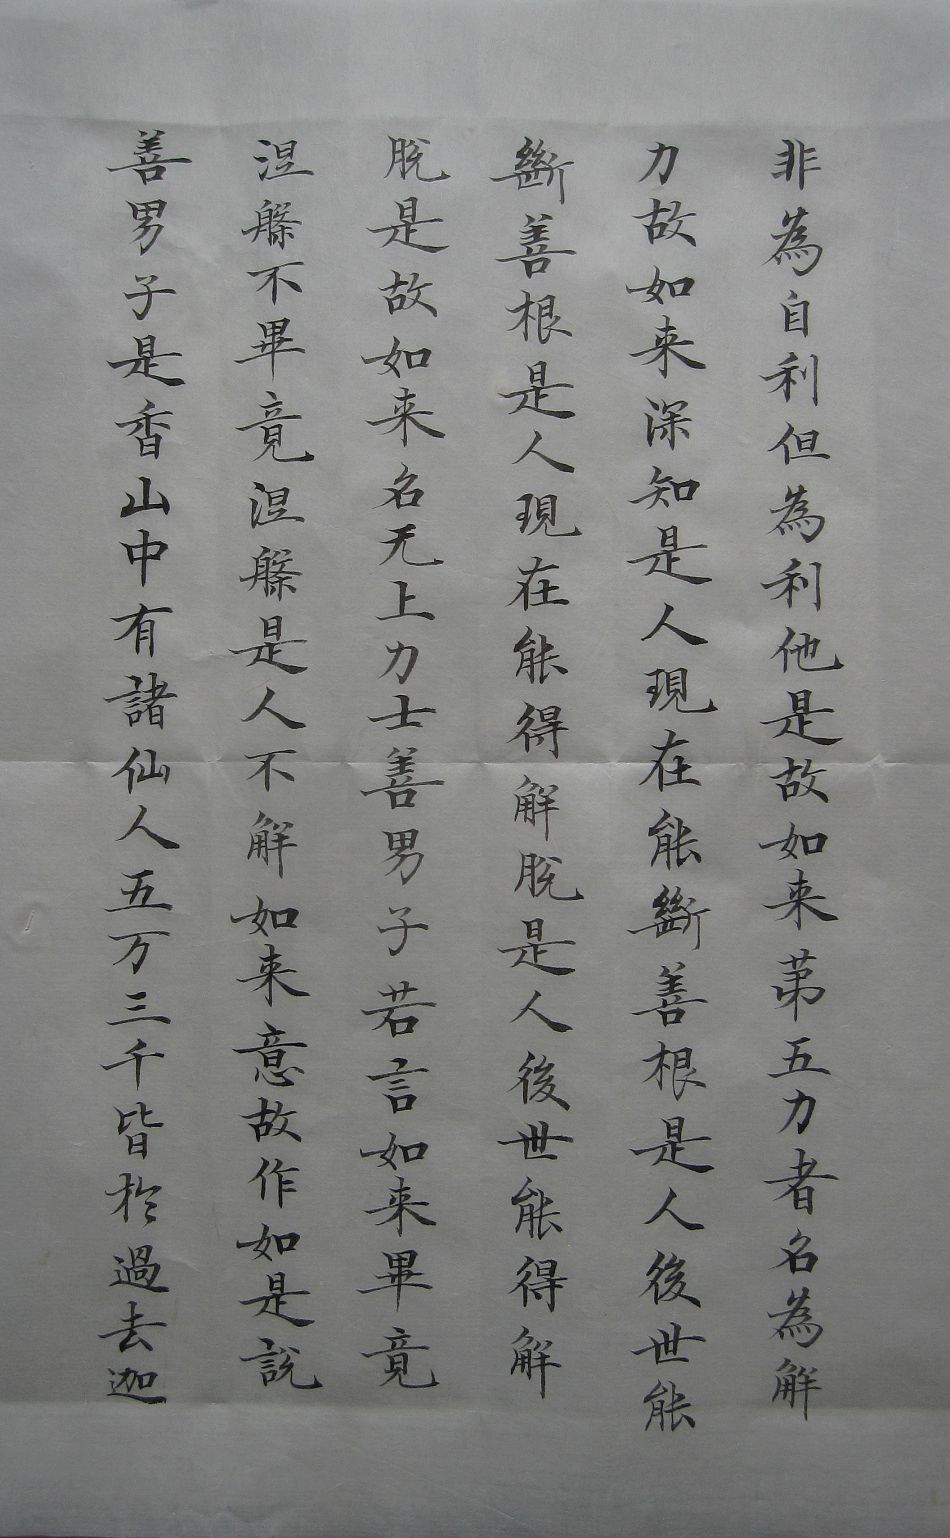 非為自利但為利他是故如来苐五力者名為解
力故如来深知是人現在能斷善根是人後世能
斷善根是人現在能得解脫是人後世能得解
脫是故如来名无上力士善男子若言如来畢竟
涅槃不畢竟涅槃是人不解如来意故作如是說
善男子是香山中有諸仙人五万三千皆於過去迦